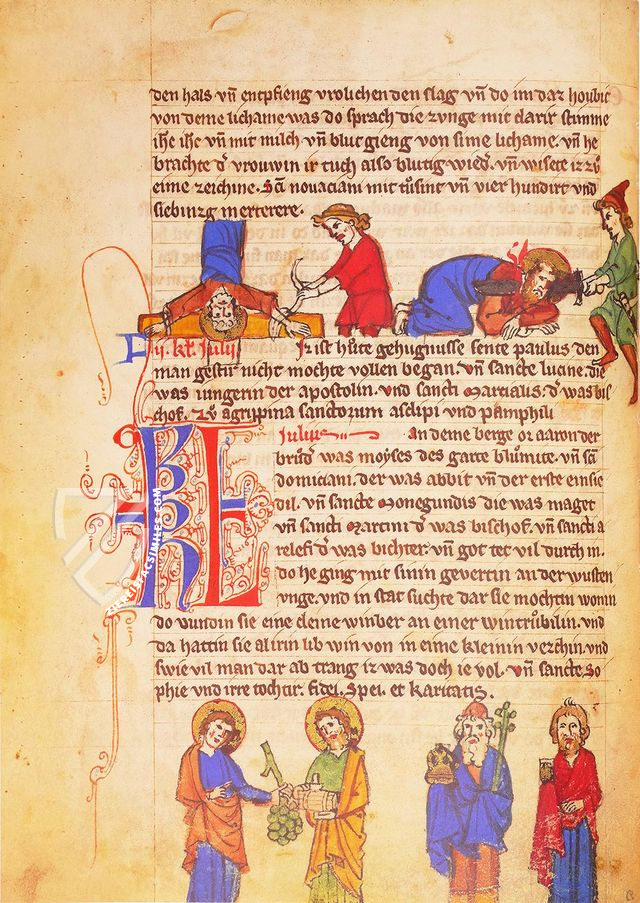 den hals vn̄ entpfieng vrolichen den slag vn̄ do im daz houbit
von deme lichame was do sprach die zvnge mit clarir stimme
ihc ihc vn̄ mit milch vn̄ blut gieng von sime lichame. vn̄ he
brachte d' vrouwin ir tuch also blutig wied'. vn̄ wisete iz zv
eime zeichine. Sc̄i nouaciani mit tusint vn̄ vier hundirt vnd
siebinzig merterere.
ij. kł. Julij Iz ist hute gehugnisse sente paulus den
man gestir nicht mochte vollen began. vn̄ sancte lucine. die
was iungerin der apostolin. vnd sancti Marcialis. d' was bis
chof. zv agrippina sanctorum asclipi vnd pamphili
KL
Julius An deme berge or aaron der
brud' was moyses des garte blumite. vn̄ sc̄i
domiciani. der was abbit vn̄ der erste einsie
dil. vn̄ sancte Monegundis die was maget
vn̄ sancti Martini d' was bischof. vn̄ sancti a
relefi d' was bichter. vn̄ got tet vil durch in.
do he ging mit sinin gevertin an der wusten
vnge. vnd in stat suchte daz sie mochtin wonin
do vundin sie eine cleine winber an einer wintrubilin. vnd
da hattin sie alirin lib win von in eime kleinin vezchin. vnd
swie vil man dar ab trang iz was doch ie vol. vn̄ sancte So
phie vnd irre tochtir. fidei. Spei. et karitatis.
ZIEREIS FACSIMILES.COM